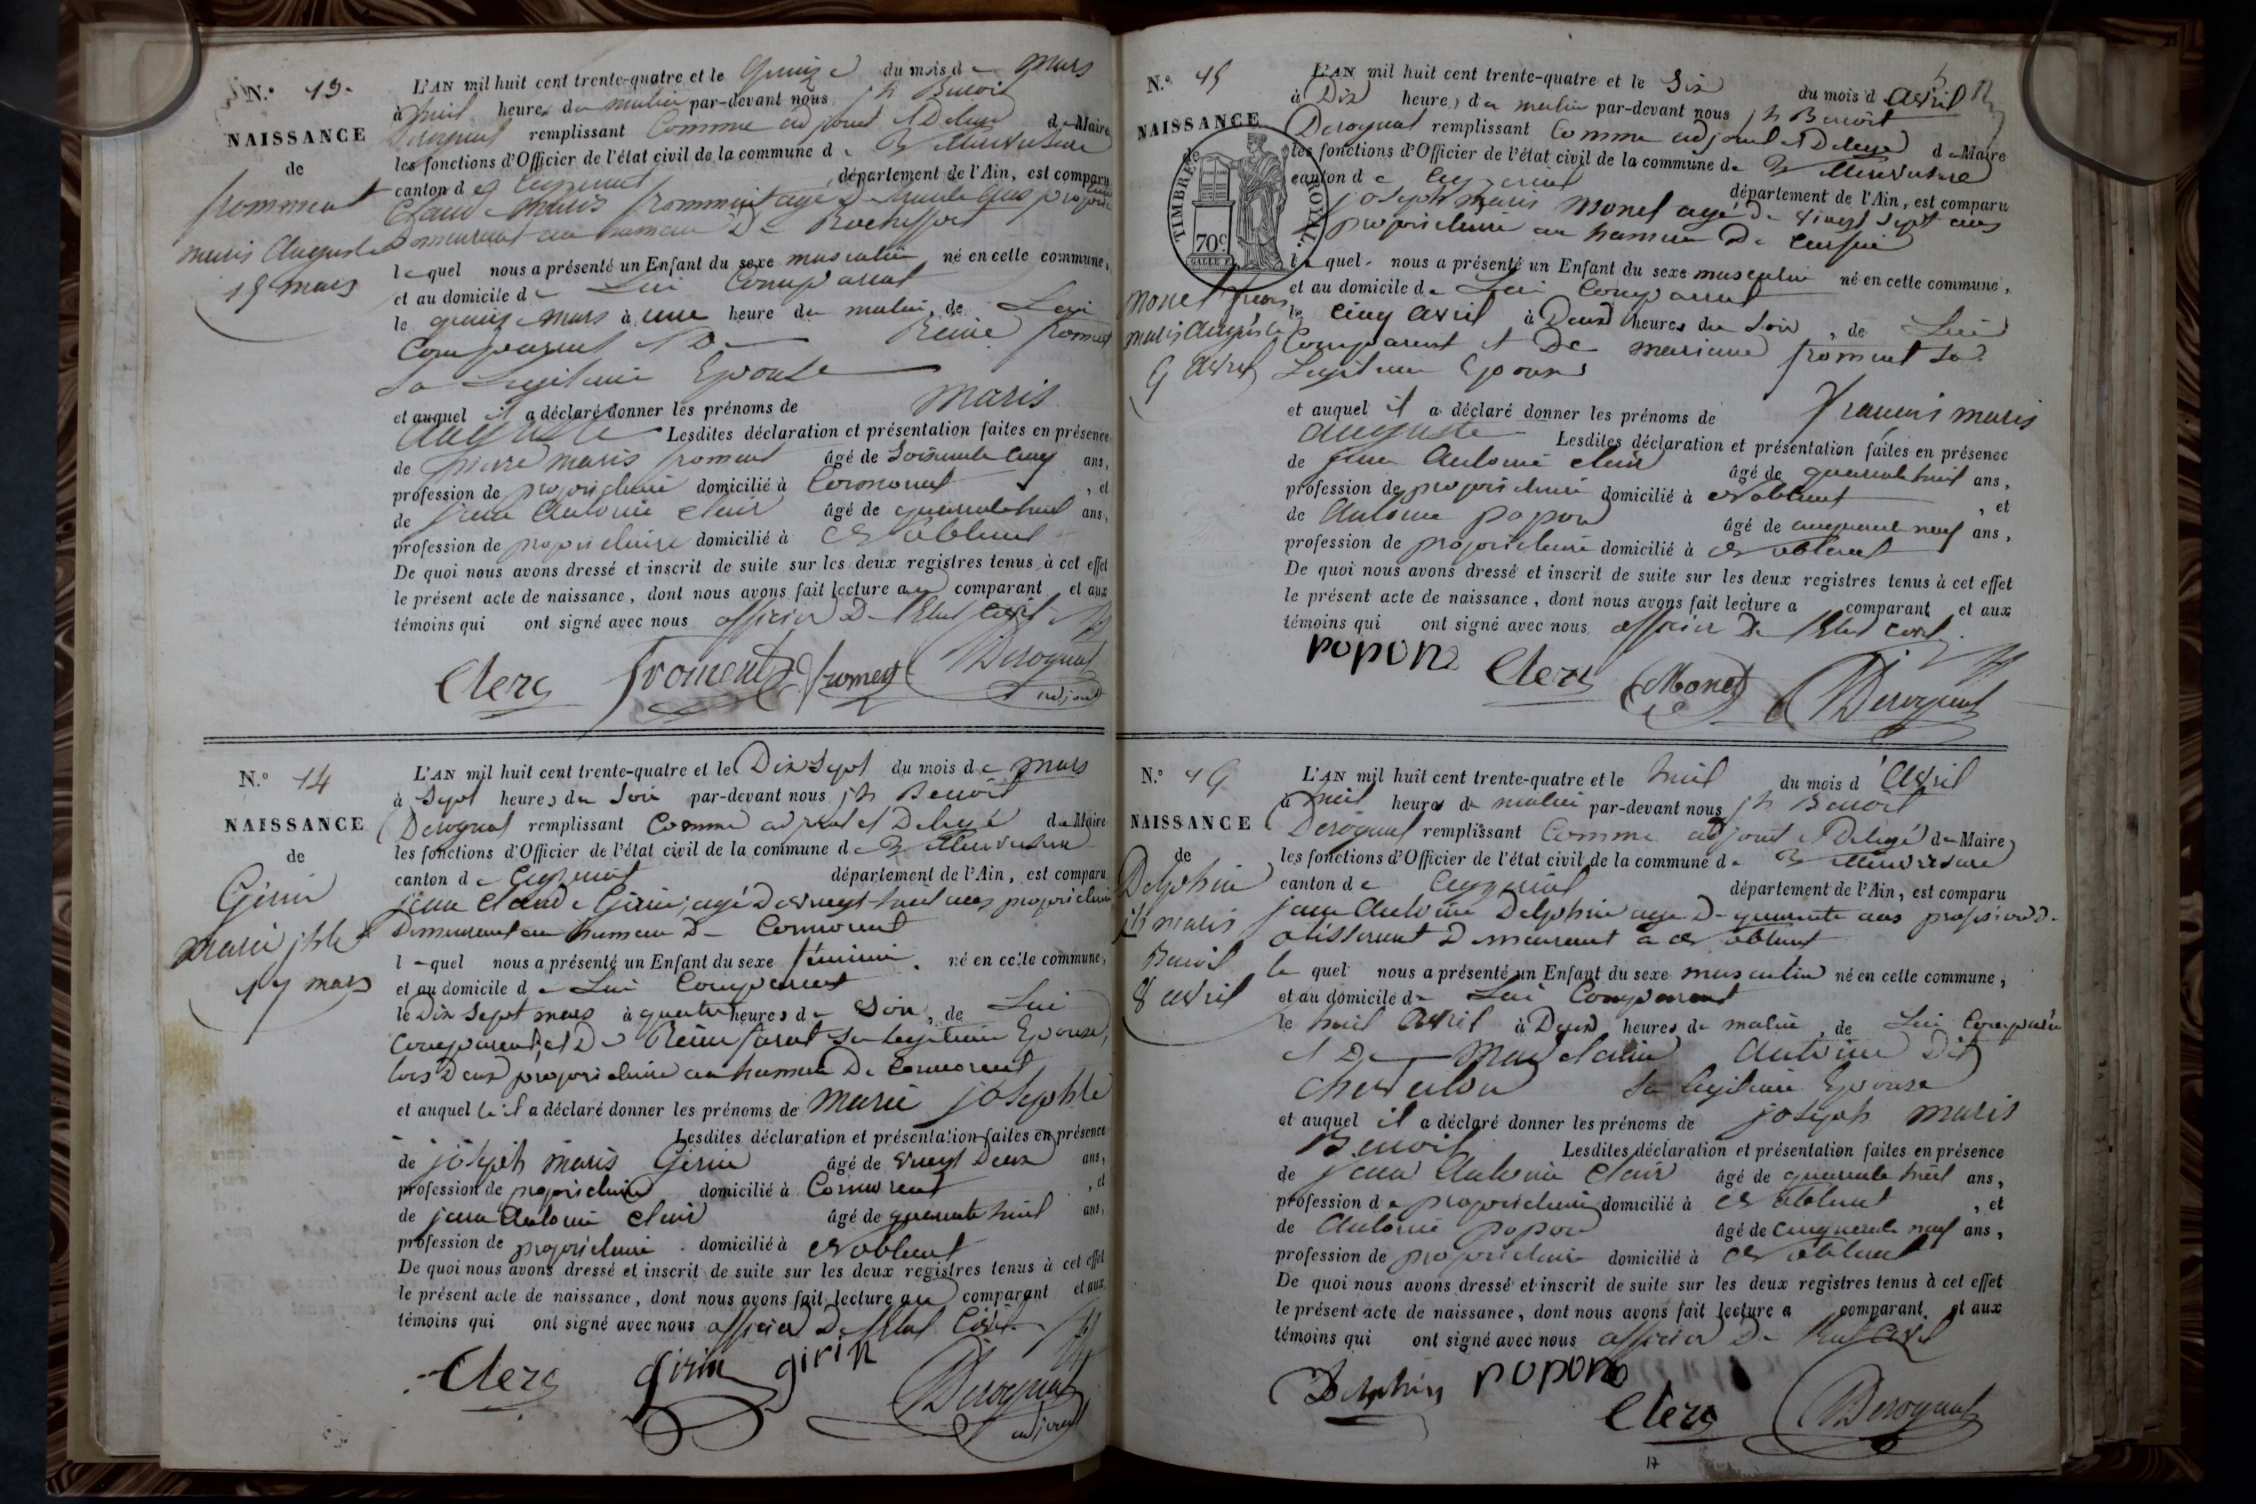 N.° 13.
NAISSANCE
de
fromment
maris Auguste
15 mars
L'AN mil huit cent trente-quatre et le quinze du mois de mars
à huit heures du matin par-devant nous jh Benoit
Derognat remplissant comme adjoint et Delegé de Maire
les fonctions d'Officier de l'état civil de la commune de
canton de département de l'Ain, est comparu
Claude maris fromment agé de ans
Demeurant au hameau De Rochefort
lequel nous a présenté un Enfant du sexe masculin né en cette commune,
et au domicile de Lui Comparant
le quinze mars à une heure du matin, de Lui
Comparant et De Reine froment
Sa Legitime Epouse
et auquel il a déclaré donner les prénoms de maris
Auguste Lesdites déclaration et présentation faites en présence
de pierre maris froment âgé de Soisante cinq ans,
profession de propriétaire domicilié à Cormorent, et
de jean Antoine Clerc âgé de quarante huit ans,
profession de propriétaire domicilié à
De quoi nous avons dressé et inscrit de suite sur les deux registres tenus à cet effet
le présent acte de naissance, dont nous avons fait lecture au comparant et aux
témoins qui ont signé avec nous officier De l'Etat civil
Clerc froment froment Derognat
adjoint
N.° 14
NAISSANCE
de
Girin
marie jhte
17 mars
L'AN mil huit cent trente-quatre et le Dix Sept du mois de mars
à Sept heures du Soir par-devant nous jh Benoit
Derognat remplissant Comme adjoint et Delegé de Maire
les fonctions d'Officier de l'état civil de la commune de
canton de département de l'Ain, est comparu
jean Claude Girin, agé De vingt huit ans propriétaire
Demeurant au hameau De Cormorent
lequel nous a présenté un Enfant du sexe féminin, né en cette commune,
et au domicile de Lui Comparant
le Dix Sept mars à quatre heures du Soir, de Lui
Comparant, et De Reine Sa legitime Epouse,
tous Deux propriétaire au hameau De Cormorent
et auquel il a déclaré donner les prénoms de marie josephte
Lesdites déclaration et présentation faites en présence
de joseph maris Girin âgé de vingt Deux ans,
profession de propriétaire domicilié à Cormorent, et
de jean Antoine Clerc âgé de quarante huit ans,
profession de propriétaire domicilié à
De quoi nous avons dressé et inscrit de suite sur les deux registres tenus à cet effet
le présent acte de naissance, dont nous avons fait lecture au comparant et aux
témoins qui ont signé avec nous officier De l'Etat Civil
Clerc girin girin Derognat
adjoint
N.° 15
NAISSANCE
de
TIMBRE ROYAL.
70c.
monet frans
maris Auguste
L'AN mil huit cent trente-quatre et le Six du mois d'Avril
à Dix heures du matin par-devant nous jh Benoit
Derognat remplissant Comme adjoint et Delegé de Maire
les fonctions d'Officier de l'état civil de la commune de
canton de département de l'Ain, est comparu
joseph maris Monet agé De vingt Sept ans
propriétaire au hameau De
lequel nous a présenté un Enfant du sexe masculin né en cette commune,
et au domicile de Lui Comparant
le Cinq Avril à Deux heures du Soir, de Lui
Comparant et De mariane froment Sa
Legitime Epouse
et auquel il a déclaré donner les prénoms de francois maris
Auguste Lesdites déclaration et présentation faites en présence
de jean Antoine Clerc âgé de quarante huit ans,
profession de propriétaire domicilié à, et
de Antoine popon âgé de cinquante neuf ans,
profession de propriétaire domicilié à
De quoi nous avons dressé et inscrit de suite sur les deux registres tenus à cet effet
le présent acte de naissance, dont nous avons fait lecture a comparant et aux
témoins qui ont signé avec nous officier De l'Etat civil.
popon Clerc Monet Derognat
N.° 16
NAISSANCE
de
Delphin
jh maris
Benoit
8 avril
L'AN mil huit cent trente-quatre et le huit du mois d'Avril
à huit heures du matin par-devant nous jh Benoit
Derognat remplissant Comme adjoint et Delegé de Maire
les fonctions d'Officier de l'état civil de la commune de
canton de département de l'Ain, est comparu
jean Antoine Delphin agé De quarante ans profession De
Demeurant à
lequel nous a présenté un Enfant du sexe masculin né en cette commune,
et au domicile de Lui Comparant
le huit Avril à Deux heures du matin, de Lui Comparant
et De Antoine Dit
Sa legitime Epouse
et auquel il a déclaré donner les prénoms de joseph maris
Benoit Lesdites déclaration et présentation faites en présence
de jean Antoine Clerc âgé de quarante huit ans,
profession de propriétaire domicilié à, et
de Antoine popon âgé de cinquante neuf ans,
profession de propriétaire domicilié à
De quoi nous avons dressé et inscrit de suite sur les deux registres tenus à cet effet
le présent acte de naissance, dont nous avons fait lecture a comparant et aux
témoins qui ont signé avec nous officier De l'Etat civil
Delphin popon
Clerc Derognat
17